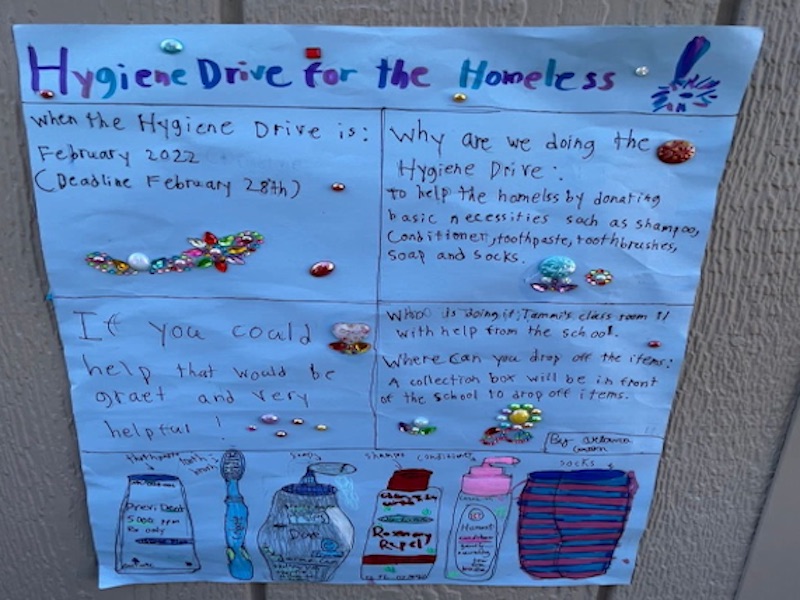 Hygiene Drive for the Homeless!
When the Hygiene Drive is:
February 2022
(Deadline February 28th)
Why are we doing the
Hygiene Drive:
to help the homelss by donating
basic necessities such as shampoo,
Conditioner, toothpaste, toothbrushes,
soap and socks.
If you could
help that would be
graet and very
helpful!
Who is doing it; Tammi's class room 11
with help from the school.
Where can you drop off the items:
A collection box will be in front
of the school to drop off items.
By:
tooth
brush
soap
shampoo
conditioner
socks
Previ Dent
5000 ppm
Rx only
Dove
Rosemary
Repel